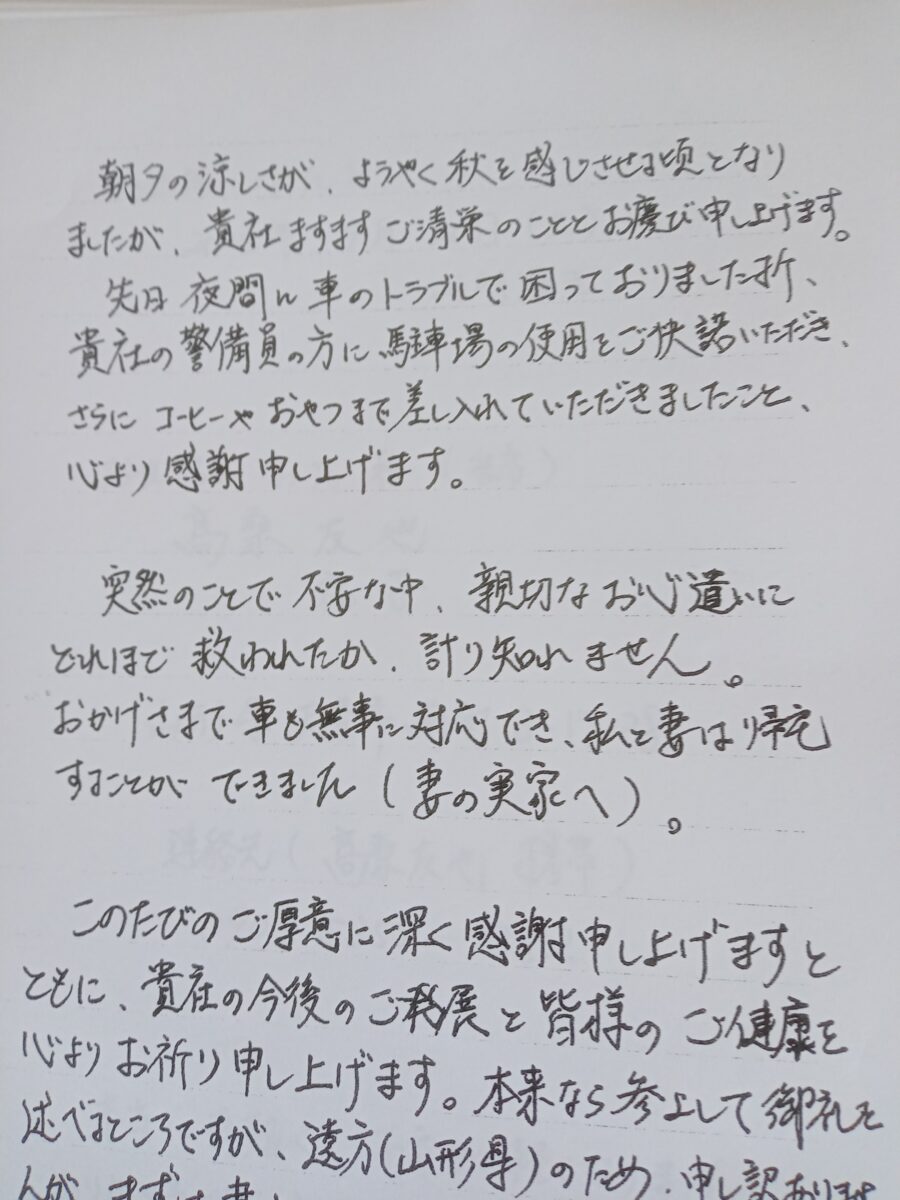 朝夕の涼しさが、ようやく秋を感じさせる頃となり
ましたが、貴社ますますご清栄のこととお慶び申し上げます。
先日夜間に車のトラブルで困っておりました折、
貴社の警備員の方に駐車場の使用をご快諾いただき、
さらにコーヒーやおやつまで差し入れていただきましたこと、
心より感謝申し上げます。
突然のことで不安な中、親切なお心遣いに
どれほど救われたか、計り知れません。
おかげさまで車も無事に対応でき、私と妻は帰宅
することができました(妻の実家へ)。
このたびのご厚意に深く感謝申し上げますと
ともに、貴社の今後のご発展と皆様のご健康を
心よりお祈り申し上げます。本来なら参上して御礼を
述べるところですが、遠方(山形県)のため、申し訳ありませ
んが、まずは書